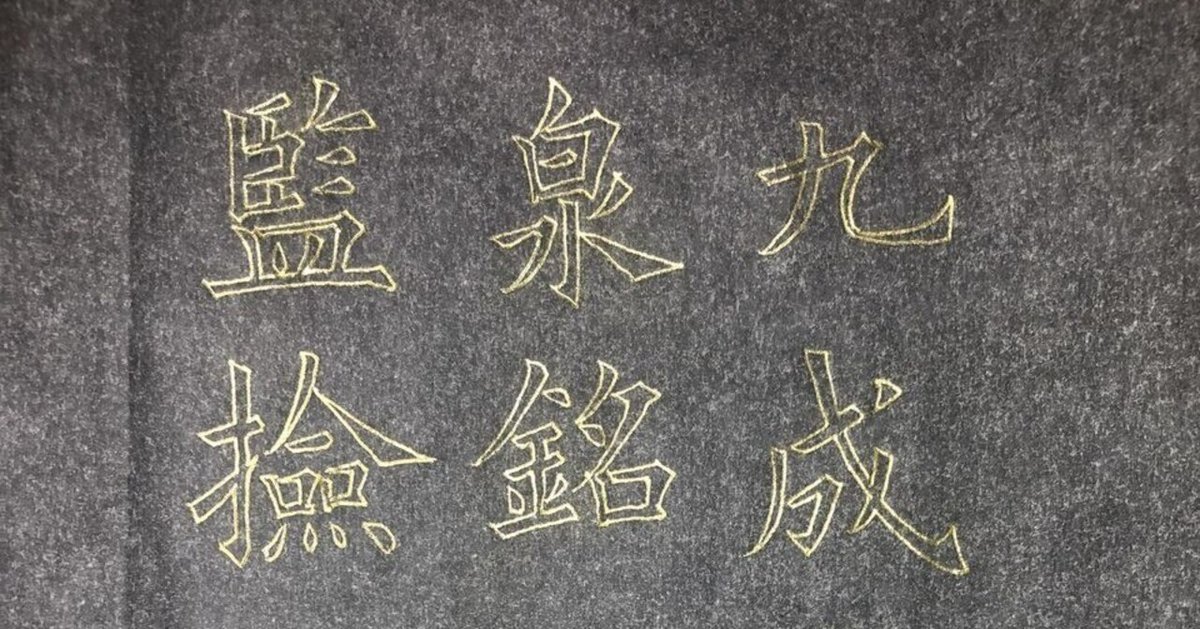 九成
泉銘
監撿